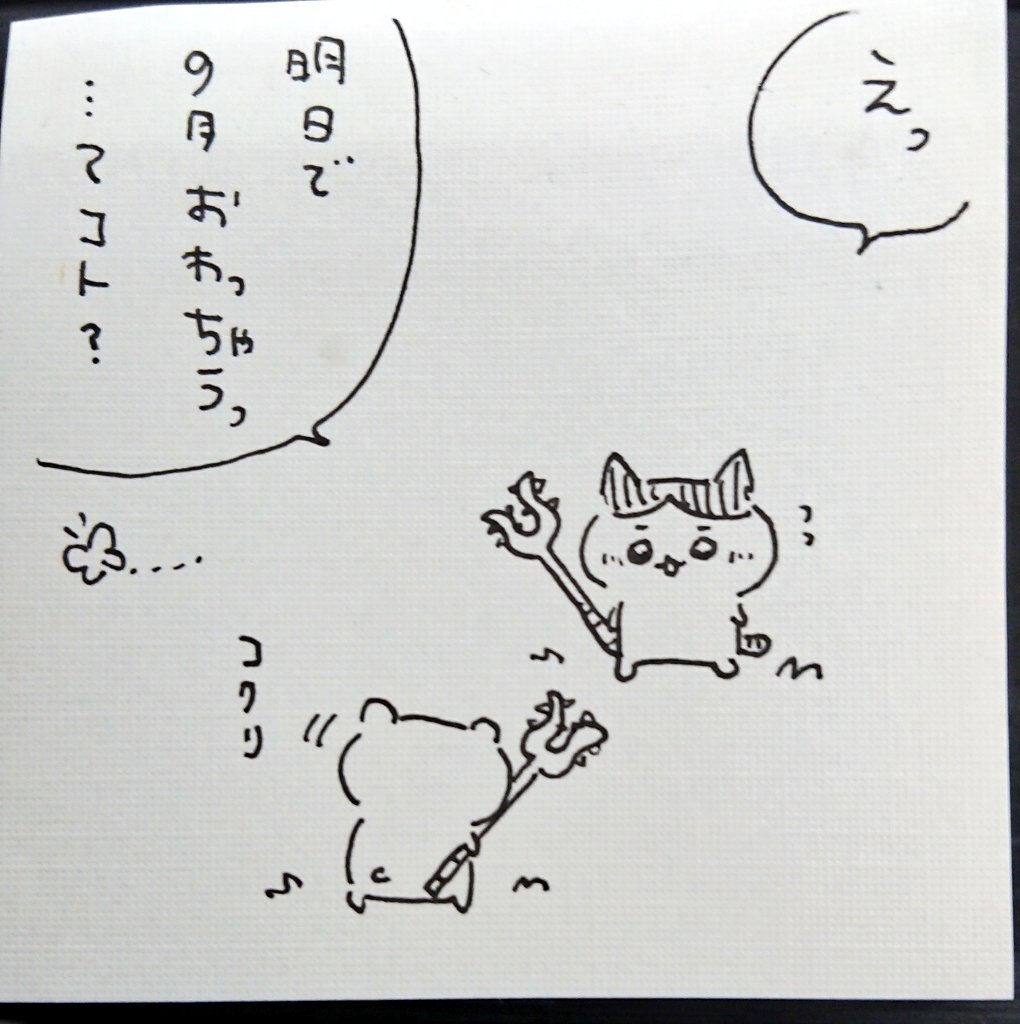 えっ
明日で
9月おわっちゃうっ
…ってコト?
コクリ